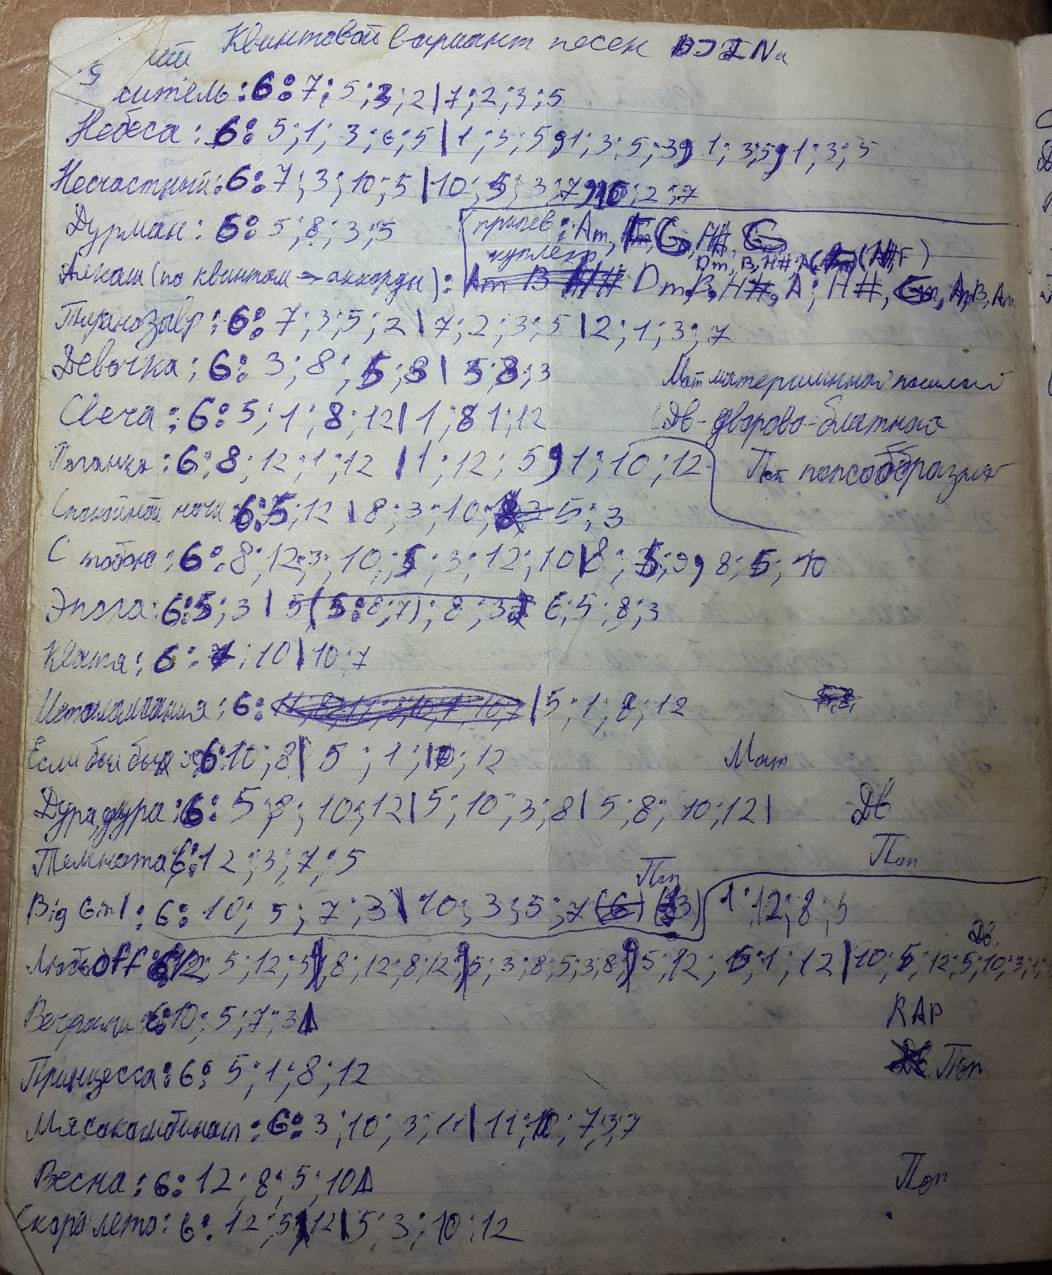 Квинтовой вариант песен DJINa
житель: 6: 7; 5; 3; 2 | 7; 2; 3; 5
Небеса: 6: 5; 1; 3; 6; 5 | 1; 3; 5, 1; 3; 5; 3, 1; 3; 5, 1; 3; 5
Несчастный: 6: 7; 3; 10; 5 | 10; 5; 3; 7, 10; 2; 7
Дурман: 6: 5; 8; 3; 5
припев: Am, G, H#, G
куплет:
Dm, B, H#, A
Алкаш (по квинтам → аккорды): Dm, B, H#, A; H#,
Тиранозавр: 6: 7; 3; 5; 2 | 7; 2; 3; 5 | 2; 1; 3; 7
Девочка: 6: 3; 8; 5; 8 | 5; 8; 3
Мат
Свеча: 6: 5; 1; 8; 12 | 1; 8; 1; 12
Дв - дворово-блатная
Поганка: 6: 8; 12; 1; 12 | 1; 12; 5, 1; 10; 12
Поп попсобразия
Спокойной ночи: 6: 5; 12 | 8; 3; 10; 5; 3
С тобою: 6: 8; 12; 3; 10; 5; 3; 12; 10 | 8; 5; 8; 5; 10
Эпоха: 6: 5; 3 | 5 (5: 8; 7); 8; 3 6; 5; 8; 3
6: 7; 10 | 10; 7
6: | 5; 1; 8; 12
Если бы был я: 6: 10; 8 | 5; 1; 10; 12
Мат
Дура, дура: 6: 5; 8; 10; 12 | 5; 10; 3; 8 | 5; 8; 10; 12 |
Дв
Темнота: 6: 12; 3; 7; 5
Поп
Поп
6: 10; 5; 7; 3 | 10; 3; 5; 7 1; 12; 8; 5
Дв.
Любовь off: 5; 12; 5, 8; 12; 8; 12, 5; 3; 8; 5; 3; 8, 5; 12; 5; 1; 12 | 10; 5; 12; 5; 10; 3;
6: 10; 5; 7; 3
RAP
Принцесса: 6: 5; 1; 8; 12
Поп
Мясокомбинат: 6: 3; 10; 3; 11 | 11; 10; 7; 3; 7
Весна: 6: 12; 8; 5; 10
Поп
Скоро лето: 6: 12; 5 | 12 | 5; 3; 10; 12